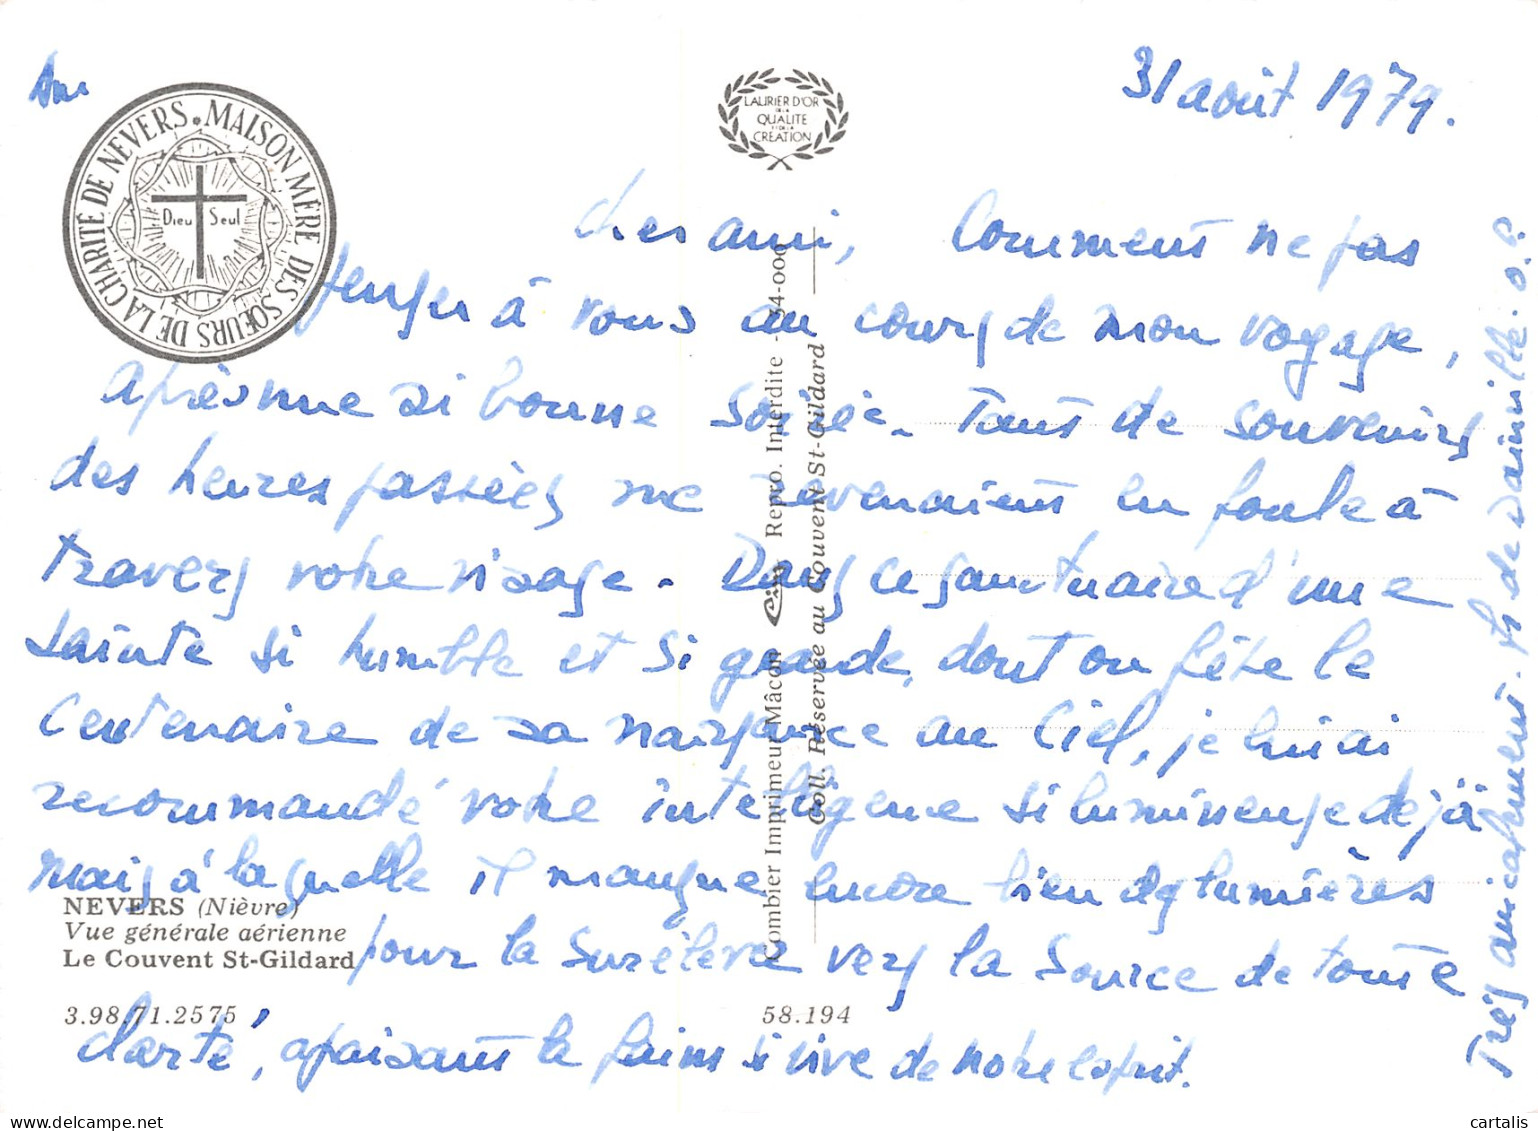 31 août 1979.
Am
MAISON MÈRE DES SŒURS DE LA CHARITÉ DE NEVERS.
Dieu Seul
LAURIER D'OR
DE LA
QUALITÉ
ET DE LA
CRÉATION
Cher ami, Comment ne pas
penser à vous au cours de mon voyage,
après une si bonne soirée. Tant de souvenirs
des heures passées me revenaient en foule à
travers votre visage. Dans ce sanctuaire d'une
sainte si humble et si grande, dont on fête le
Centenaire de sa naissance au Ciel, je lui ai
recommandé votre intelligence si lumineuse déjà
mais à laquelle il manque encore bien des lumières
pour la surélever vers la Source de toute
clarté, apaisant la faim si vive de notre esprit.
Très amicalement. de Dainville. o. p.
NEVERS (Nièvre)
Vue générale aérienne
Le Couvent St-Gildard
3.98.71.2575
58.194
Combier Imprimeur Mâcon Cim Repro. Interdite - 54-000
Coll. Réservée au Couvent St-Gildard
cartalis